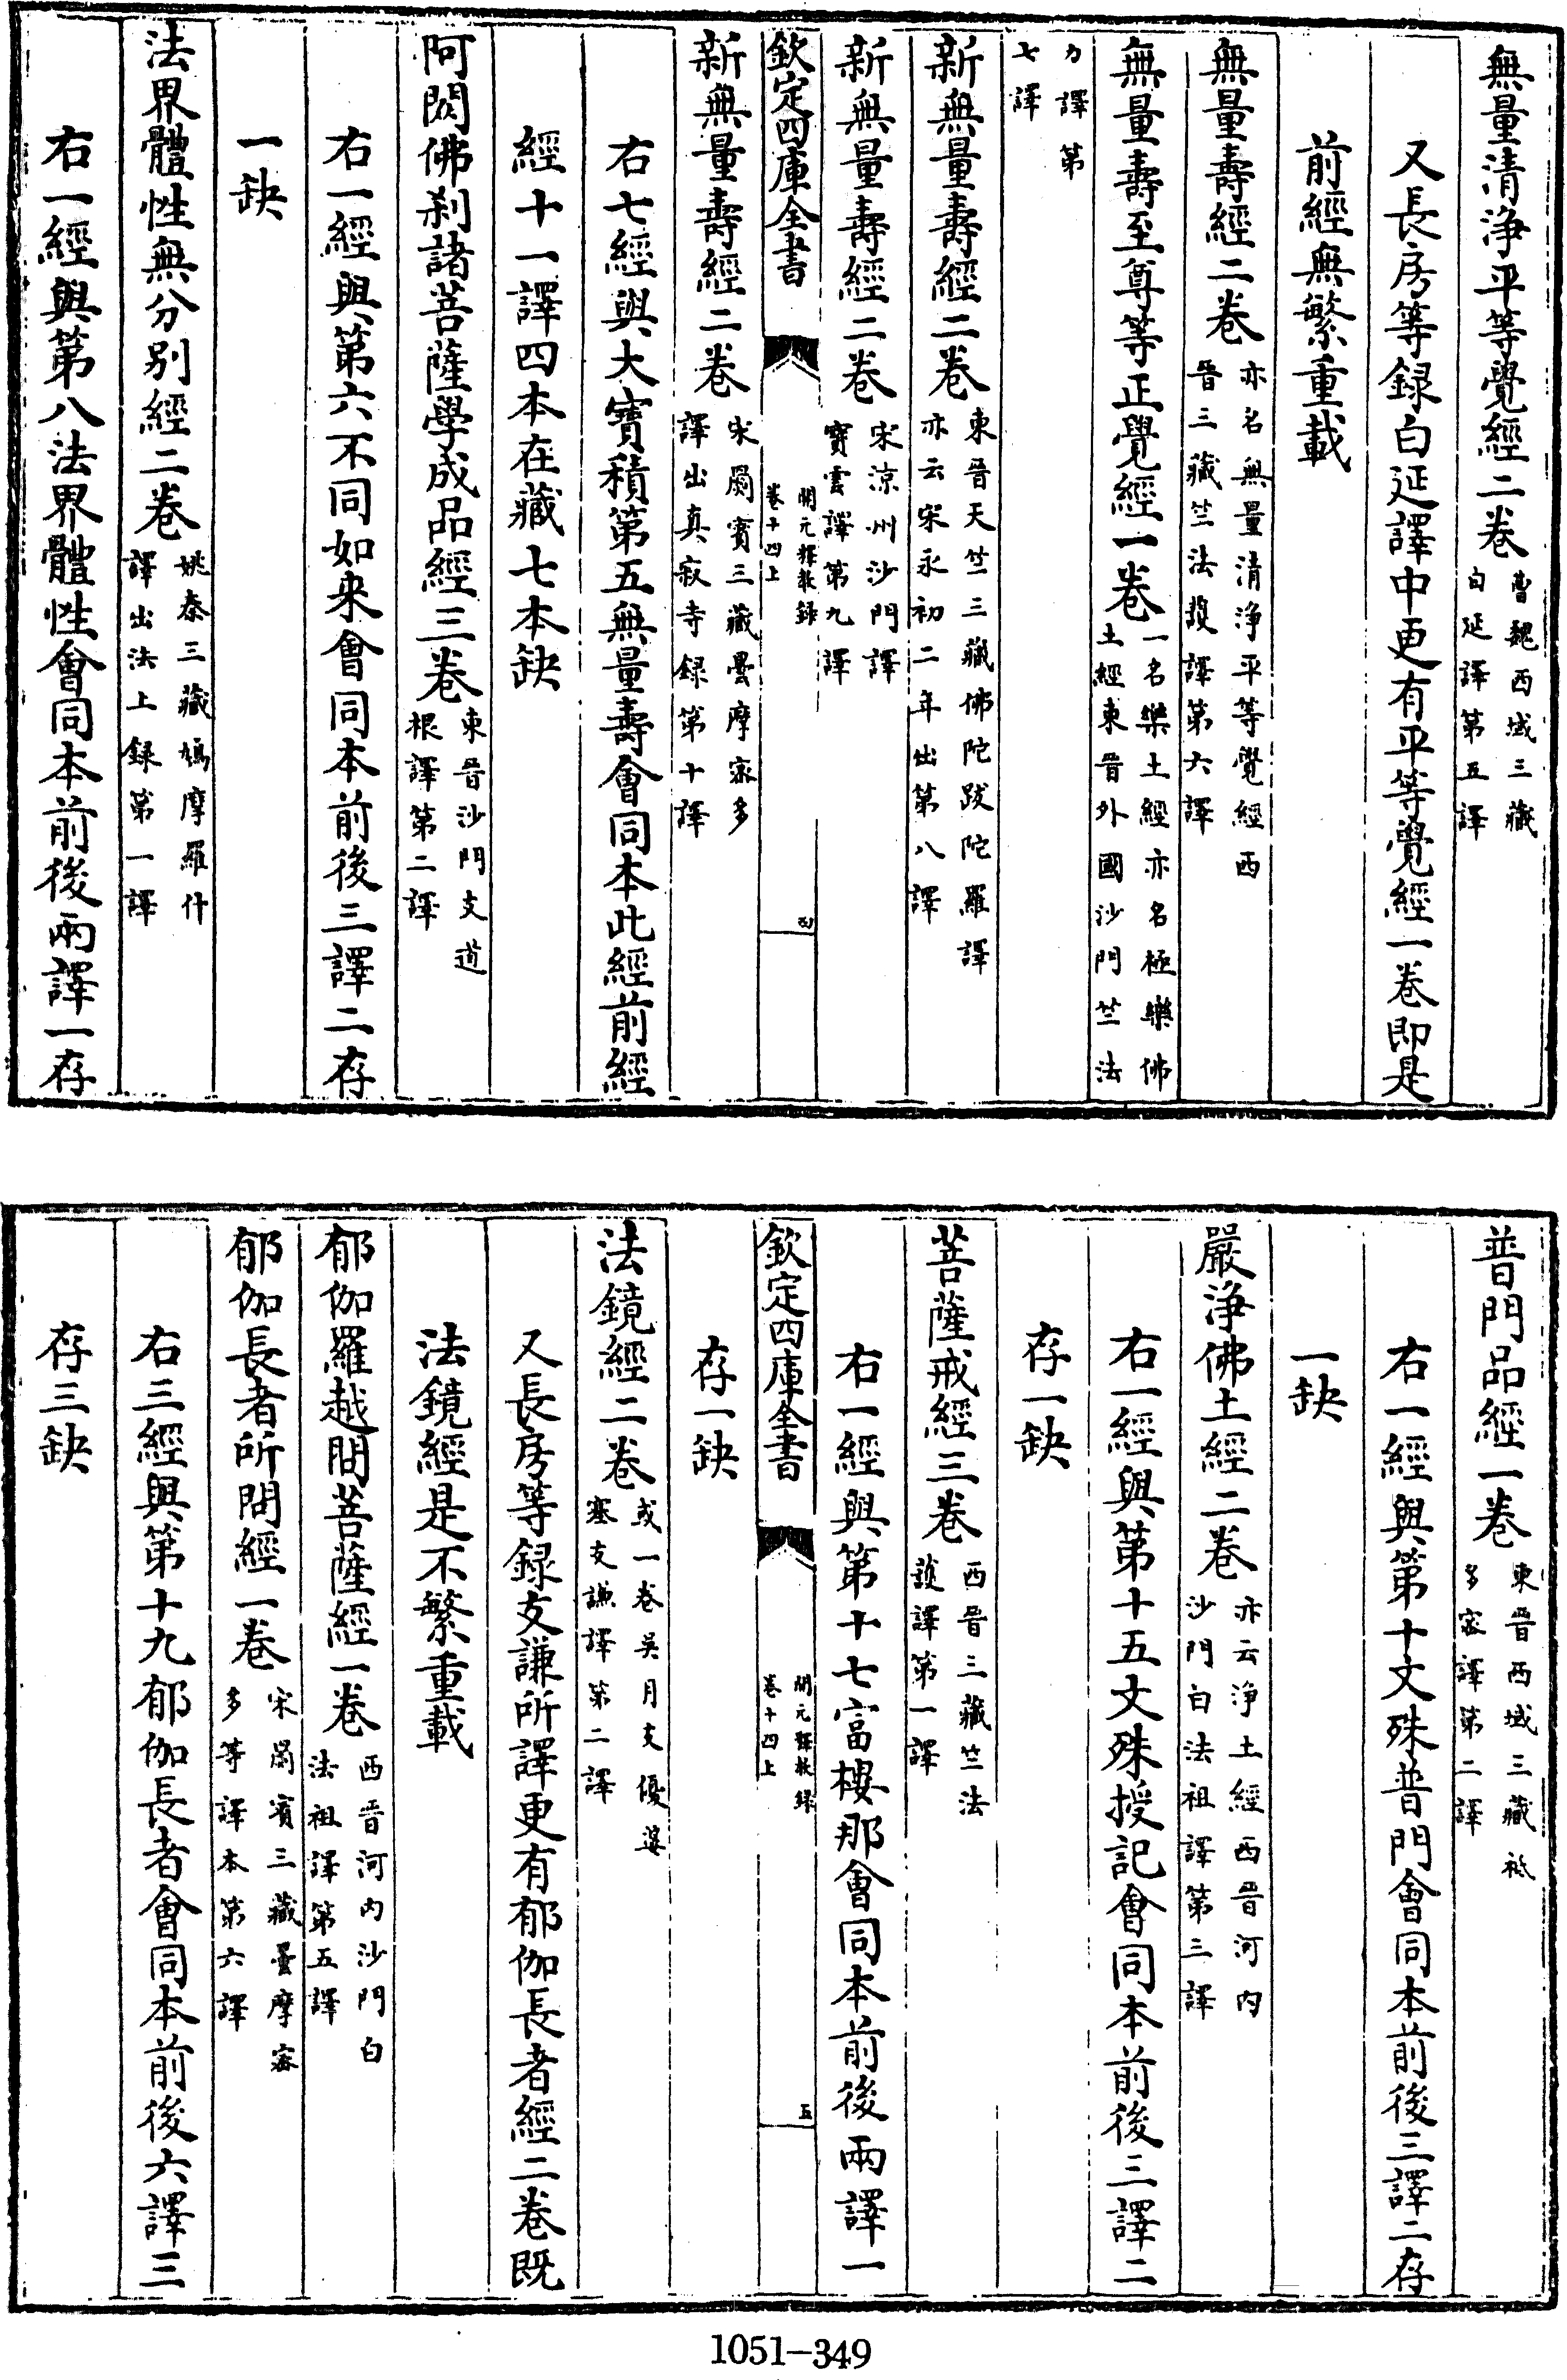 無量清淨平等覺經二卷曹魏西域三藏白延譯第五譯
又長房等録白延譯中更有平等覺經一卷即是
前經無繁重載
無量壽經二卷亦名無量清淨平等覺經西晉三藏竺法護譯第六譯
無量壽至尊等正覺經一卷一名樂土經亦名極樂佛土經東晉外國沙門竺法
力譯第七譯
新無量壽經二卷東晉天竺三藏佛陀跋陀羅譯亦云宋永初二年出第八譯
新無量壽經二卷宋涼州沙門釋寶雲譯第九譯
欽定四庫全書 開元釋教録卷十四上 四
新無量壽經二卷宋罽賓三藏曇摩宻多譯出真寂寺録第十譯
右七經與大寶積第五無量壽會同本此經前經
經十一譯四本在藏七本缺
阿閦佛刹諸菩薩學成品經三卷東晉沙門支道根譯第二譯
右一經與第六不同如来會同本前後三譯二存
一缺
法界體性無分别經二卷姚秦三藏鳩摩羅什譯出法上録第一譯
右一經與第八法界體性會同本前後兩譯一存
普門品經一卷東晉西域三藏祇多宻譯第二譯
右一經與第十文殊普門會同本前後三譯二存
一缺
嚴淨佛土經二卷亦云淨土經西晉河内沙門白法祖譯第三譯
右一經與第十五文殊授記會同本前後三譯二
存一缺
菩薩戒經三卷西晉三藏竺法護譯第一譯
右一經與第十七富樓那會同本前後兩譯一
欽定四庫全書 開元釋教録卷十四上 五
存一缺
法鏡經二卷或一卷吳月支優婆塞支謙譯第二譯
又長房等録支謙所譯更有郁伽長者經二卷既
法鏡經是不繁重載
郁伽羅越問菩薩經一卷西晉河内沙門白法祖譯第五譯
郁伽長者所問經一卷宋罽賓三藏曇摩宻多等譯本第六譯
右三經與第十九郁伽長者會同本前後六譯三
存三缺
1051-349